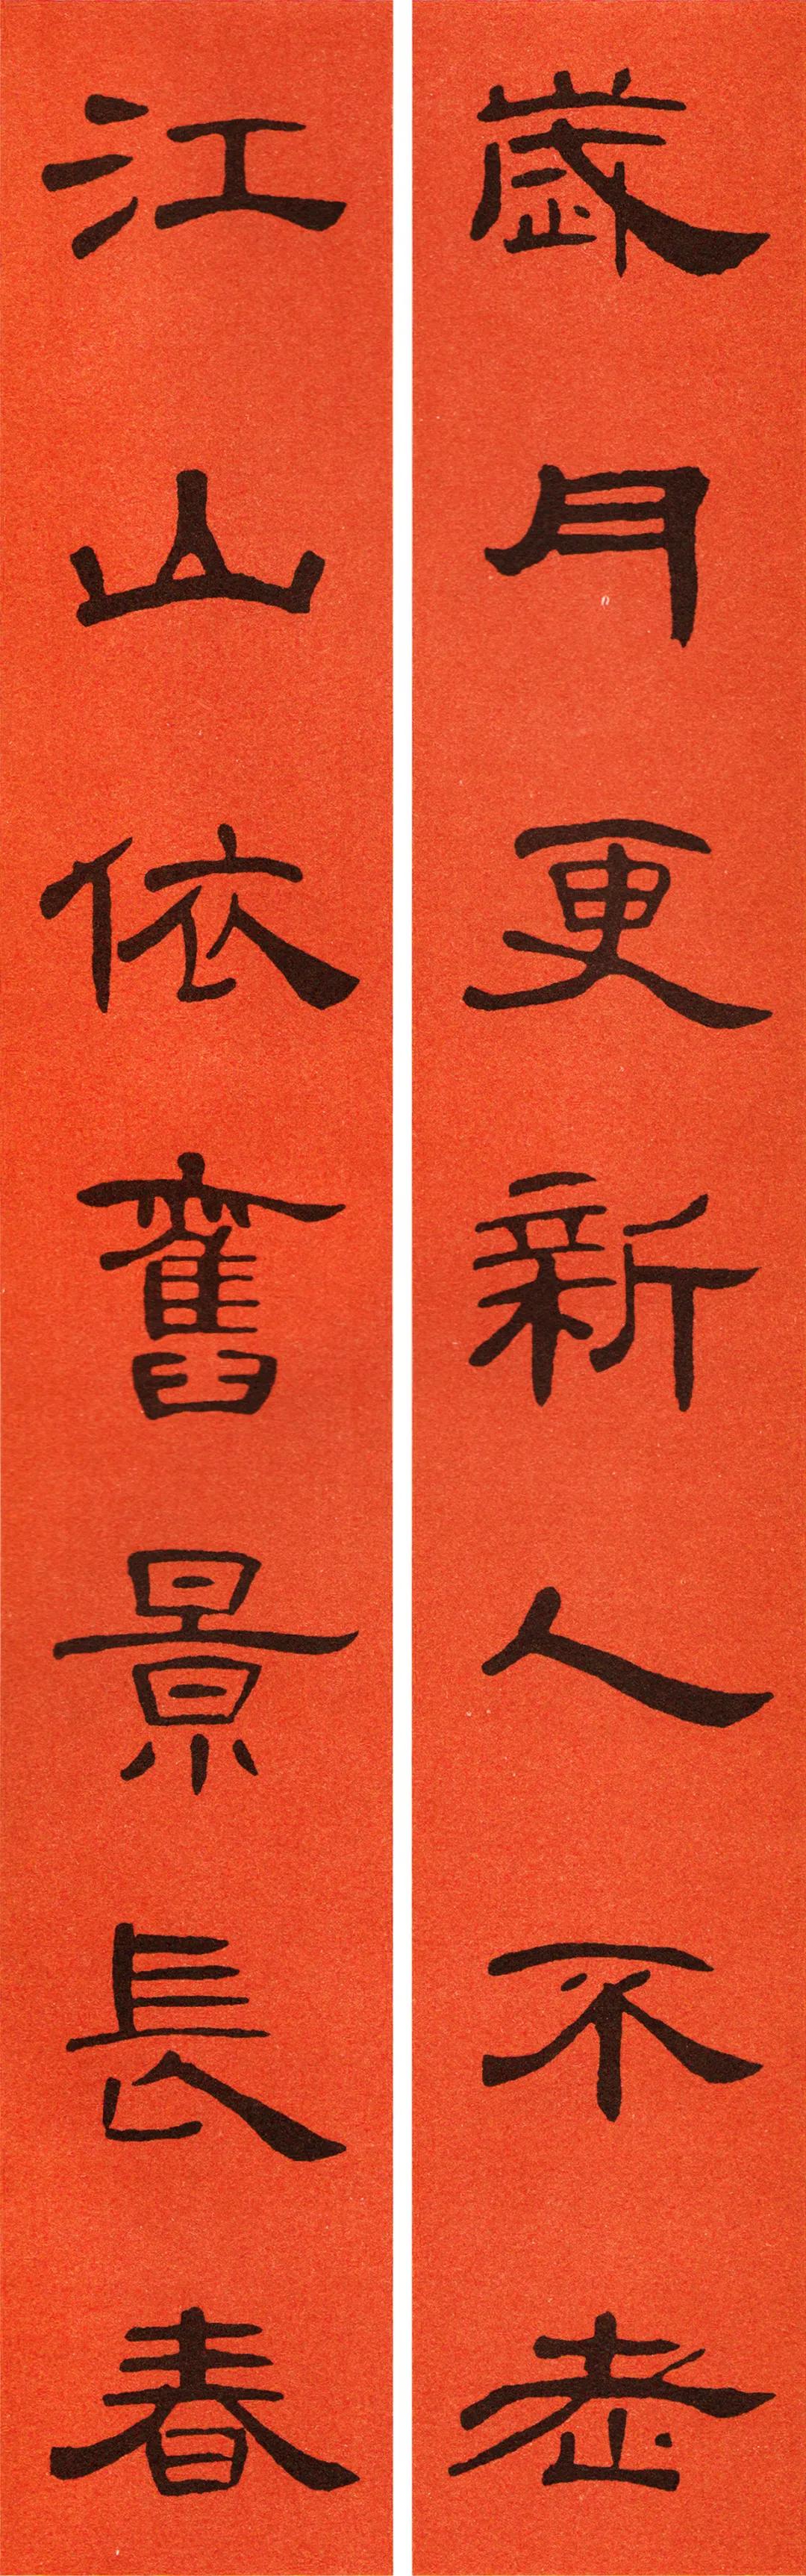 歲月更新人不老
江山依舊景長春